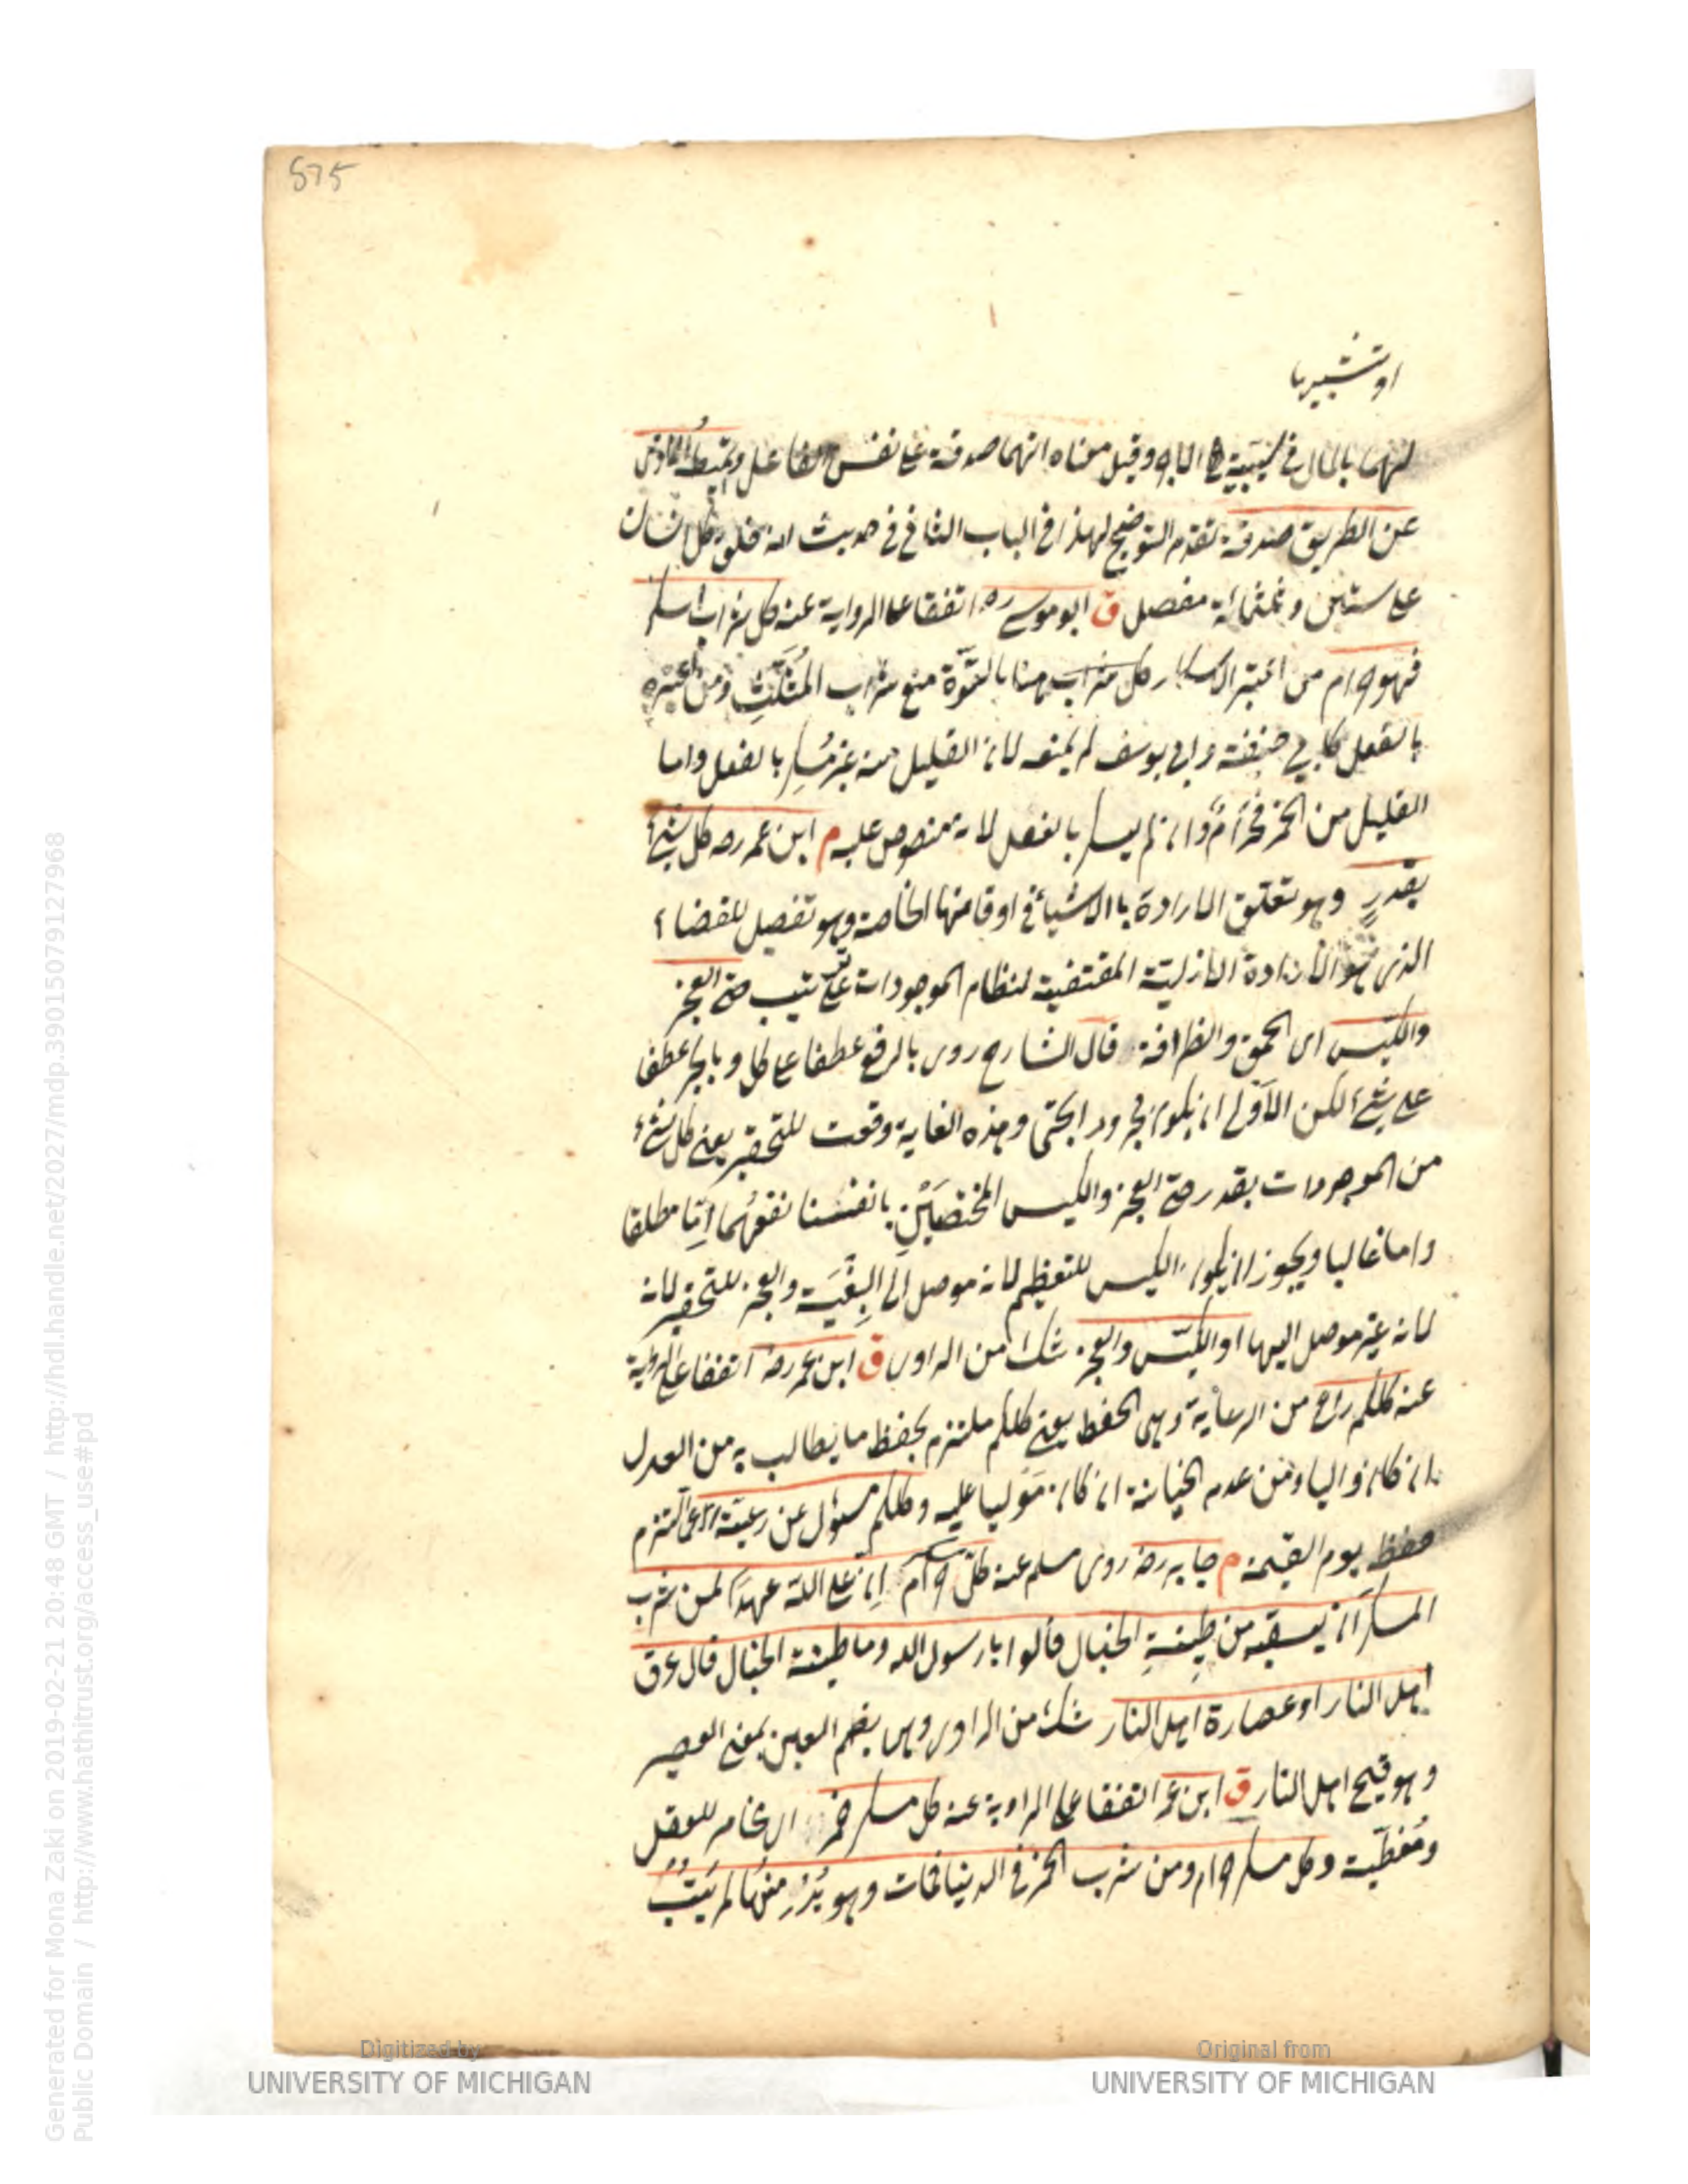 575
او تشبيها
لهما بالمال في وقيل معناه انهما صدقة على نفس الفاعل وتميط الاذى
عن الطريق صدقة تقدم التوضيح لهذا في الباب الثاني في حديث انه خلق كل انسان
على ستين وثلثمائة مفصل ق ابو موسى رضه اتفقا على الرواية عنه كل شراب اسكر
فهو حرام من اعتبر الاسكار كل شراب هنا بالقوة منع شراب المثلث ومن اعتبره
بالفعل كابي حنيفة وابي يوسف لم يمنعه لان القليل منه غير مسكر بالفعل واما
القليل من الخمر فحرام وان لم يسكر بالفعل لانه منصوص عليه م ابن عمر رضه كل شيء
بقدر وهو تعلق الارادة بالاشياء في اوقاتها الخاصة وهو تفصيل للقضاء
الذي هو الارادة الازلية المقتضية لنظام الموجودات على ترتيب حتى العجز
والكيس اى الحمق والظرافة قال الشارح روى بالرفع عطفا على كل وبالجر عطفا
على شيء لكن الاولى ان يكون مجرورا بحتى وهذه الغاية وقعت للتحقير يعنى كل شيء
من الموجودات بقدر حتى العجز والكيس المختصين بانفسنا نفعهما اما مطلقا
واما غالبا ويجوز ان يكون الكيس للتعظيم لانه موصل الى البغية والعجز للتحقير لانه
لانه غير موصل اليها او الكيس والعجز شك من الراوى ق ابن عمر رضه اتفقا على الرواية
عنه كلكم راع من الرعاية وهى الحفظ يعنى كلكم ملتزم بحفظ ما يطالب به من العدل
ان كان واليا ومن عدم الخيانة ان كان موليا عليه وكلكم مسؤل عن رعيته اى عما التزم
حفظه يوم القيمة م جابر رضه روى مسلم عنه كل مسكر حرام ان على الله عهدا لمن شرب
المسكر ان يسقيه من طينة الخبال قالوا يا رسول الله وما طينة الخبال قال عرق
اهل النار او عصارة اهل النار شك من الراوى وهى بضم العين بمعنى العصير
وهو قيح اهل النار ق ابن عمر اتفقا على الرواية عنه كل مسكر خمر اى مخامر للعقل
ومغطيه وكل مسكر حرام ومن شرب الخمر في الدنيا فمات وهو يدمنها لم يتب
Generated for Mona Zaki on 2019-02-21 20:48 GMT / http://hdl.handle.net/2027/mdp.39015079127968
Public Domain / http://www.hathitrust.org/access_use#pd
Digitized by
UNIVERSITY OF MICHIGAN
Original from
UNIVERSITY OF MICHIGAN